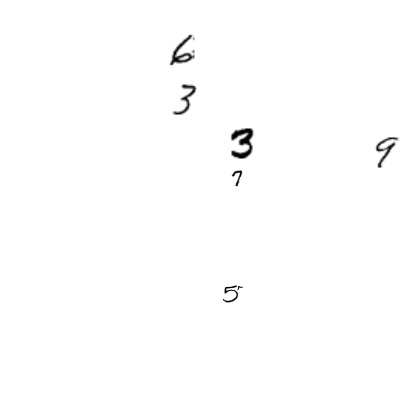 6
3
3
9
7
5